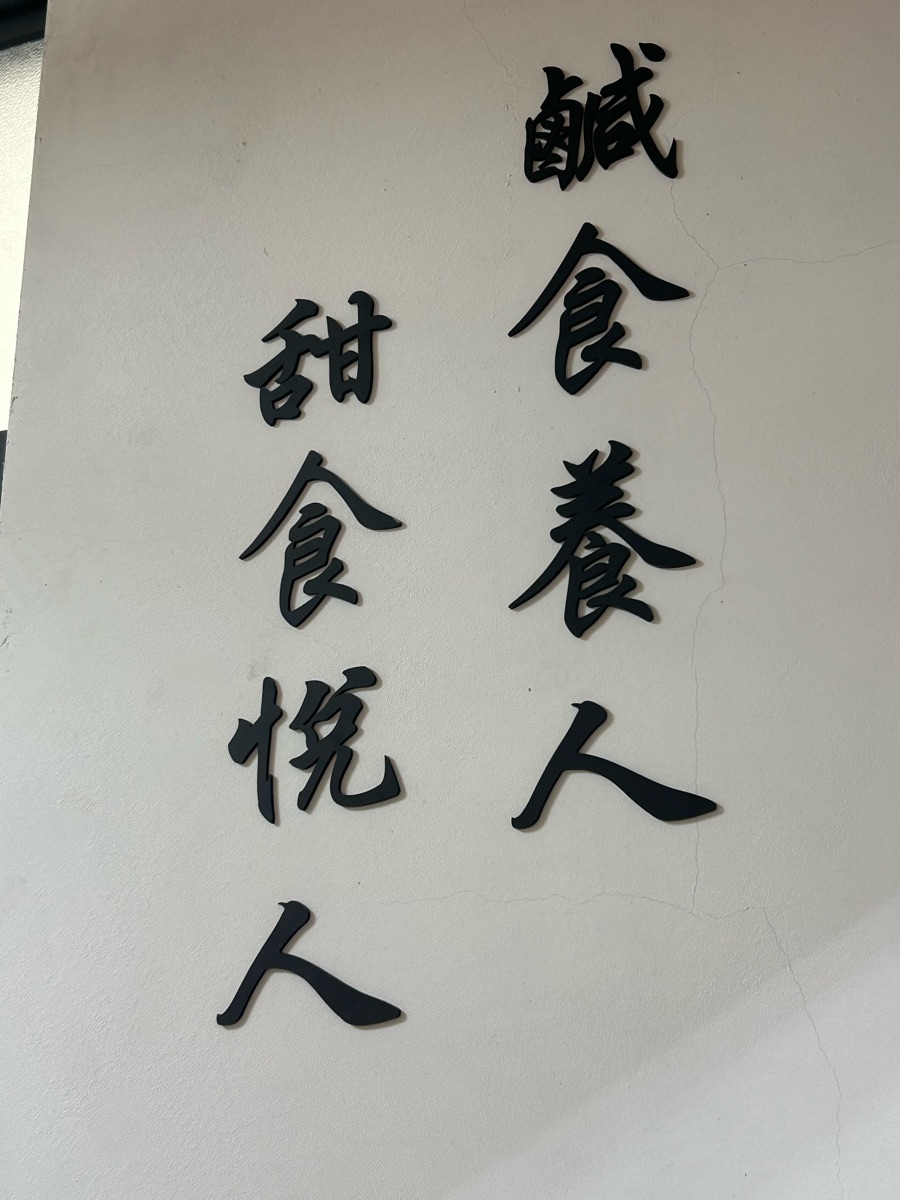 鹹食養人
甜食悅人